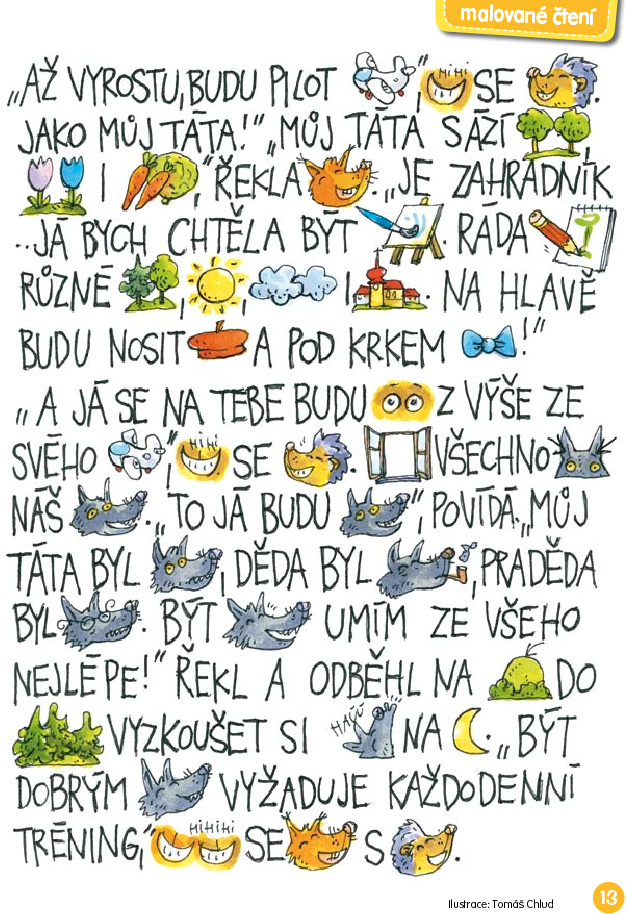 malované čtení
„AŽ VYROSTU, BUDU PILOT ,“ HIHI SE .
JAKO MŮJ TÁTA!“ „MŮJ TÁTA SÁZÍ ,
I ,“ ŘEKLA . „JE ZAHRADNÍK
..JÁ BYCH CHTĚLA BÝT . RÁDA
RŮZNÉ , , I . NA HLAVĚ
BUDU NOSIT A POD KRKEM !“
„A JÁ SE NA TEBE BUDU Z VÝŠE ZE
SVÉHO ,“ HIHI SE . VŠECHNO
NÁŠ . „TO JÁ BUDU “, POVÍDÁ. „MŮJ
TÁTA BYL , DĚDA BYL , PRADĚDA
BYL . BÝT UMÍM ZE VŠEHO
NEJLÉPE!“ ŘEKL A ODBĚHL NA DO
VYZKOUŠET SI HAÚÚ NA . „BÝT
DOBRÝM VYŽADUJE KAŽDODENNÍ
TRÉNING,“ HIHIHI SE S .
Ilustrace: Tomáš Chlud
13